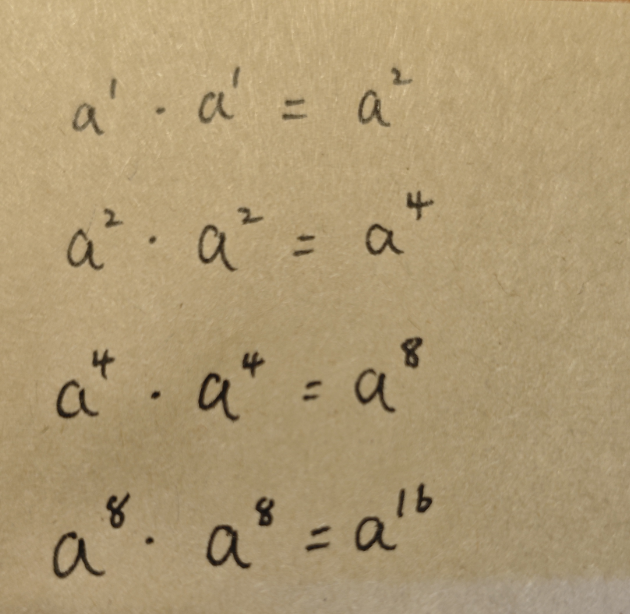 a¹ · a¹ = a²
a² · a² = a⁴
a⁴ · a⁴ = a⁸
a⁸ · a⁸ = a¹⁶